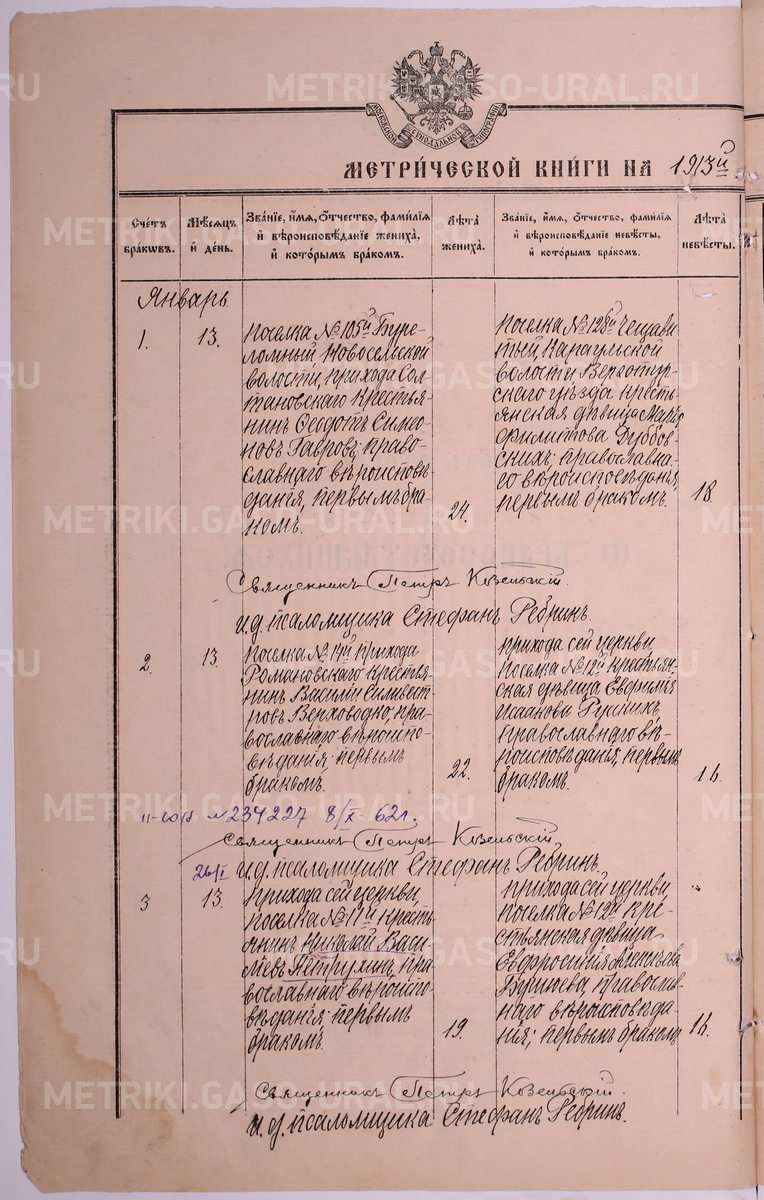 МЕТРИЧЕСКОЙ КНИГИ НА 1913й
Счетъ браковъ.
Мѣсяцъ и день.
Званіе, имя, отчество, фамилія
и вѣроисповѣданіе жениха,
и которымъ бракомъ.
Лѣта
жениха.
Званіе, имя, отчество, фамилія
и вѣроисповѣданіе невѣсты,
и которымъ бракомъ.
Лѣта
невѣсты.
Январь.
1.
13.
Поселка № 105й Буре-
ломный Новосельской
волости, прихода Сол-
тановскаго Крестья-
нинъ Ѳеодотъ Симео-
новъ Гавровъ; право-
славнаго вѣроисповѣ-
данія, первымъ бра-
комъ.
24.
Поселка № 128й
тый, Караульской
волости Верхотур-
скаго уѣзда кресть-
янская дѣвица Марѳа
Филиппова Дуббов-
скихъ; православна-
го вѣроисповѣданія,
первымъ бракомъ.
18.
Священникъ Петръ Козельскій.
И. д. псаломщика Стефанъ Ребринъ.
2.
13.
Поселка № 14й прихода
Романовскаго крестья-
нинъ Василій Силивест-
ровъ Верховодко, пра-
вославнаго вѣроиспо-
вѣданія; первымъ
бракомъ.
22.
Прихода сей церкви,
поселка № 12й Крестьян-
ская дѣвица Евфимія
Исаакова
православнаго вѣ-
роисповѣданія, первымъ
бракомъ.
16.
№ 234227 8/X-62г.
Священникъ Петръ Козельскій,
И. д. псаломщика Стефанъ Ребринъ.
26/I
3
13.
Прихода сей церкви,
поселка № 11й Кресть-
янинъ Николай Васи-
льевъ Петрухинъ, пра-
вославнаго вѣроиспо-
вѣданія; первымъ
бракомъ.
19.
Прихода сей церкви,
поселка № 12й Кре-
стьянская дѣвица
Евфросинія
православ-
наго вѣроисповѣда-
нія; первымъ бракомъ
16.
Священникъ Петръ Козельскій.
И. д. псаломщика Стефанъ Ребринъ.
METRIKI.GASO-URAL.RU